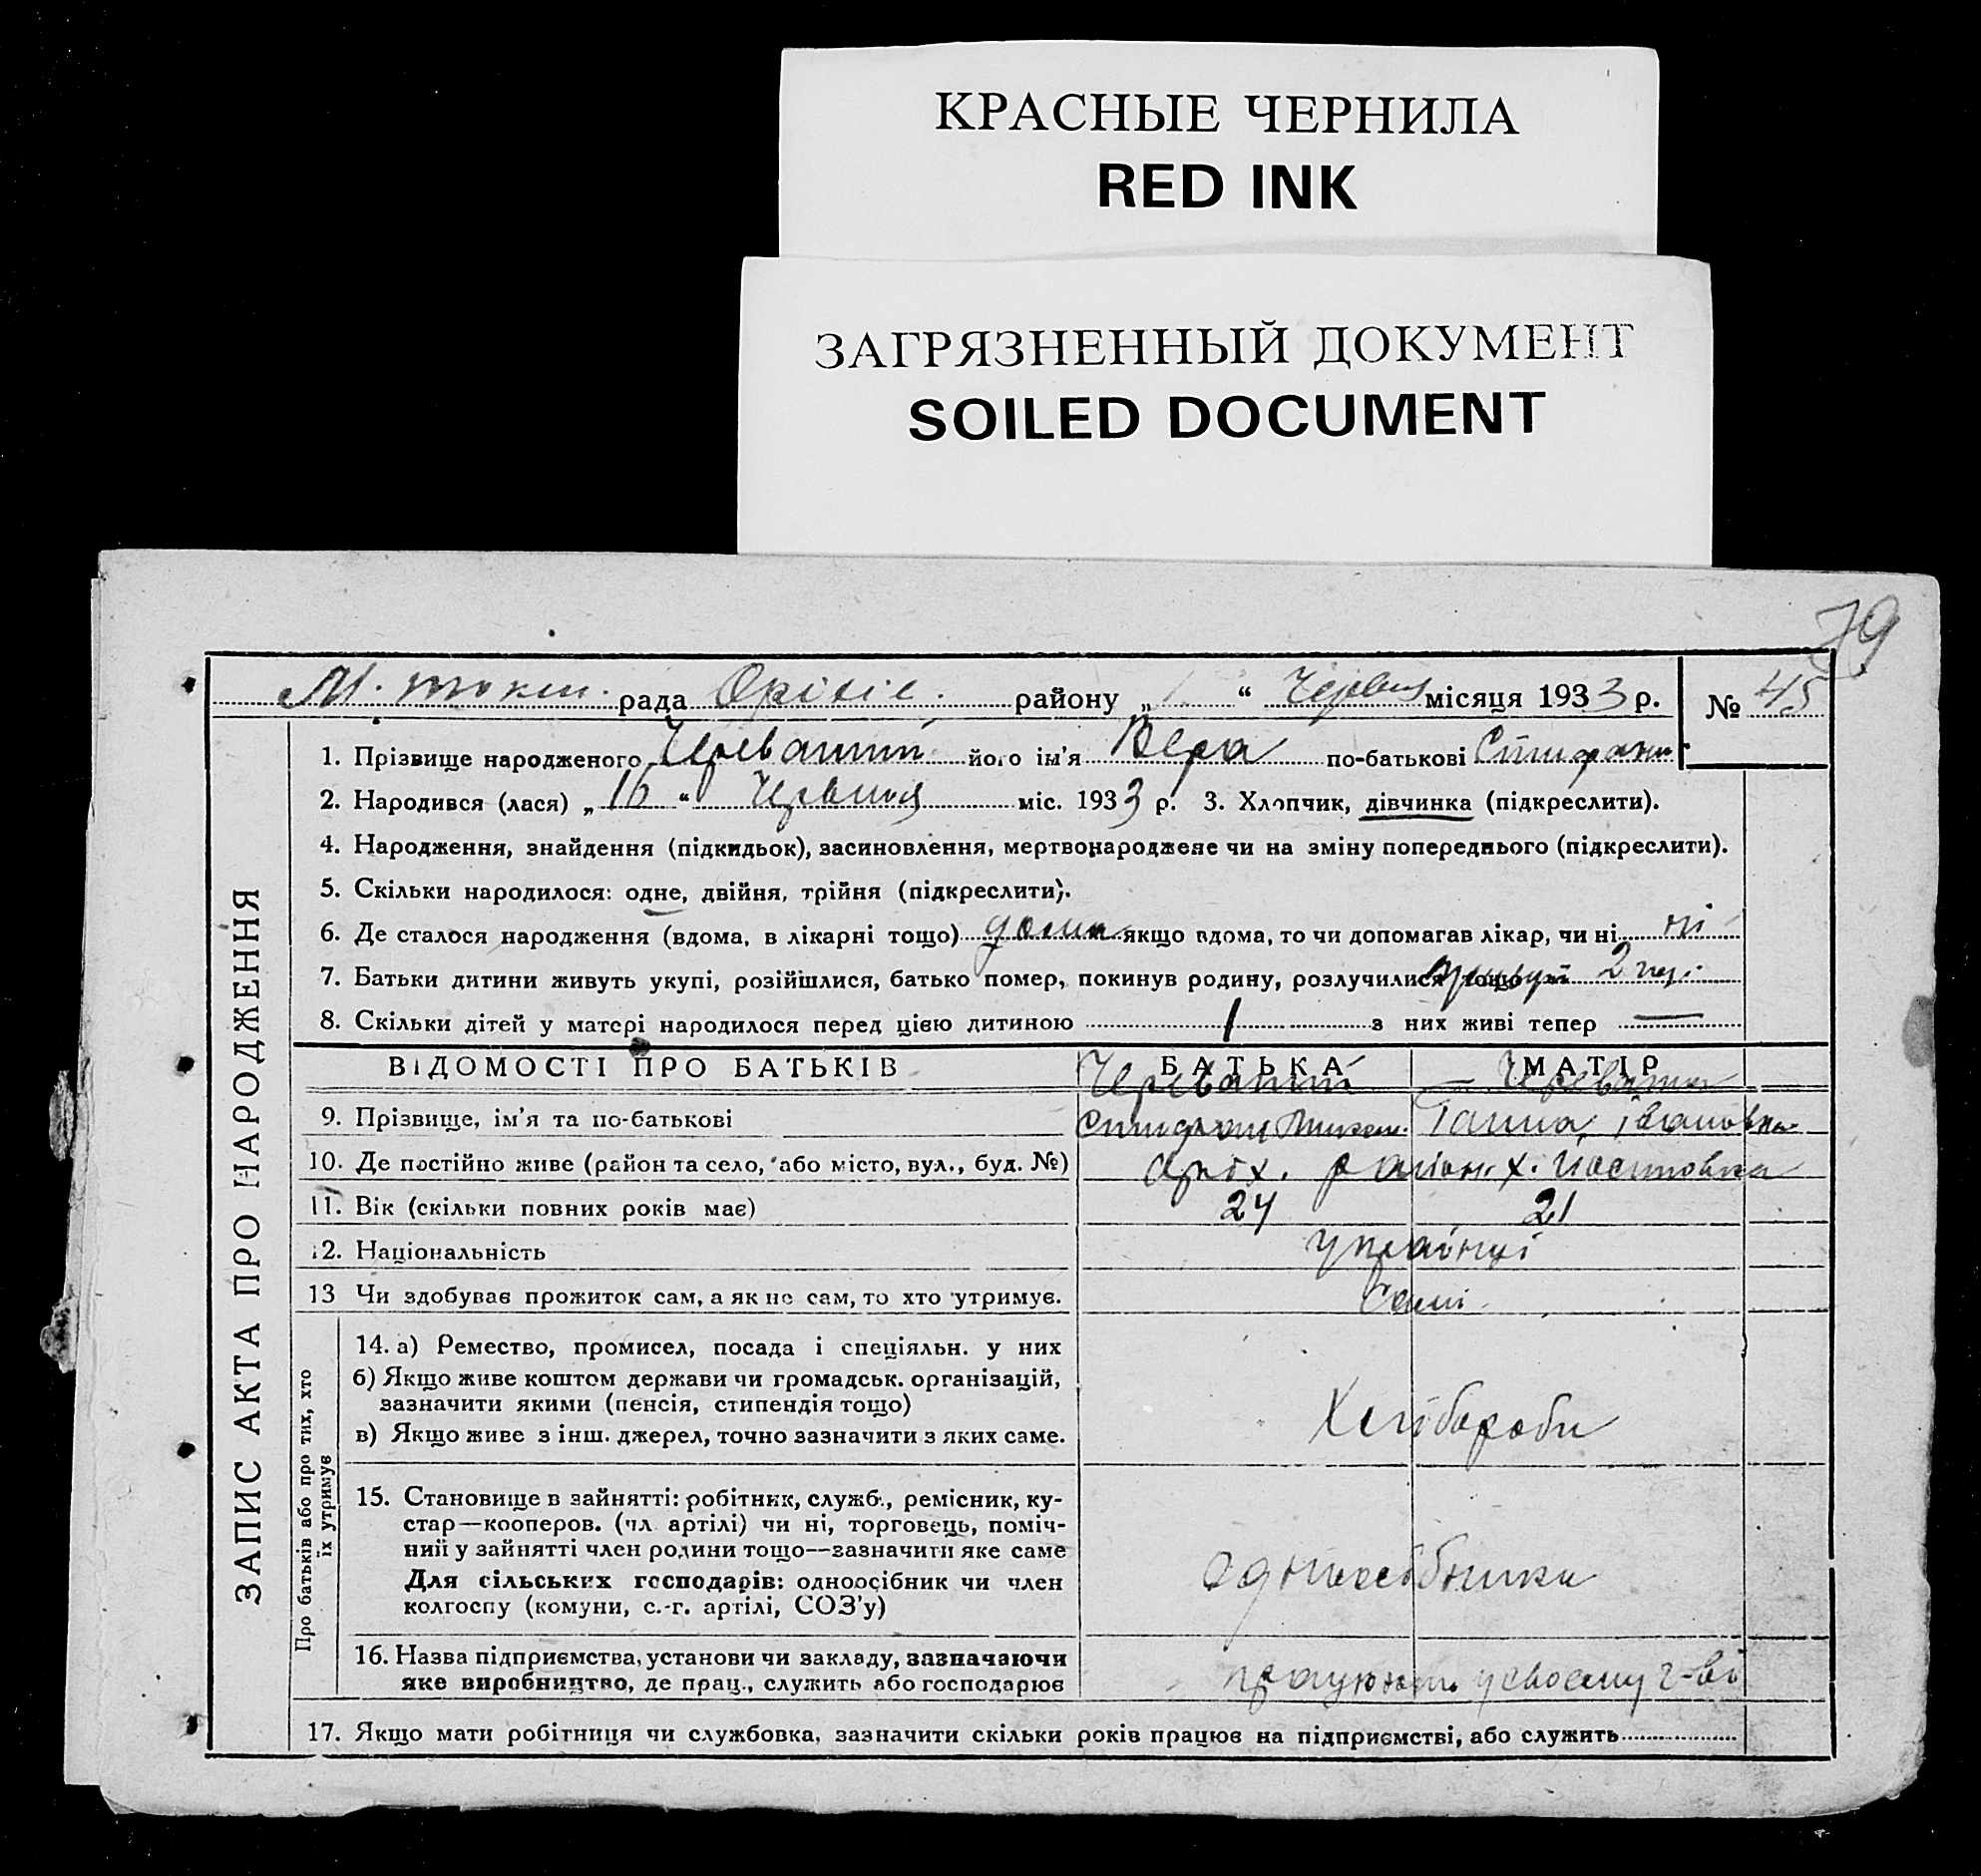 КРАСНЫЕ ЧЕРНИЛА
RED INK
ЗАГРЯЗНЕННЫЙ ДОКУМЕНТ
SOILED DOCUMENT
79
рада району „ “ Червня місяця 1933 р. № 45
ЗАПИС АКТА ПРО НАРОДЖЕННЯ
1. Прізвище народженого Череватий його ім'я Вера по-батькові
2. Народився (лася) „ 16 “ Червня міс. 1933 р. 3. Хлопчик, дівчинка (підкреслити).
4. Народження, знайдення (підкидьок), засиновлення, мертвонароджене чи на зміну попереднього (підкреслити).
5. Скільки народилося: одне, двійня, трійня (підкреслити).
6. Де сталося народження (вдома, в лікарні тощо) дома якщо вдома, то чи допомагав лікар, чи ні ні
7. Батьки дитини живуть укупі, розійшлися, батько помер, покинув родину, розлучилися тощо 2
8. Скільки дітей у матері народилося перед цією дитиною 1 з них живі тепер —
ВІДОМОСТІ ПРО БАТЬКІВ БАТЬКА МАТІР
Череватий Черевата
9. Прізвище, ім'я та по-батькові Ганна Івановна
10. Де постійно живе (район та село, або місто, вул., буд. №) район х.
11. Вік (скільки повних років має) 24 21
12. Національність українці
13 Чи здобуває прожиток сам, а як не сам, то хто утримує. Самі
Про батьків або про тих, хто
їх утримує
14. а) Ремество, промисел, посада і спеціяльн. у них
б) Якщо живе коштом держави чи громадськ. організацій,
зазначити якими (пенсія, стипендія тощо)
в) Якщо живе з інш. джерел, точно зазначити з яких саме.
Хлібороби
15. Становище в зайнятті: робітник, служб., ремісник, ку-
стар—кооперов. (чл. артілі) чи ні, торговець, поміч-
ний у зайнятті член родини тощо—зазначити яке саме
Для сільських господарів: одноосібник чи член
колгоспу (комуни, с.-г. артілі, СОЗ'у)
одноосібники
16. Назва підприємства, установи чи закладу, зазначаючи
яке виробництво, де прац., служить або господарює працюють у своєму г-ві
17. Якщо мати робітниця чи службовка, зазначити скільки років працює на підприємстві, або служить